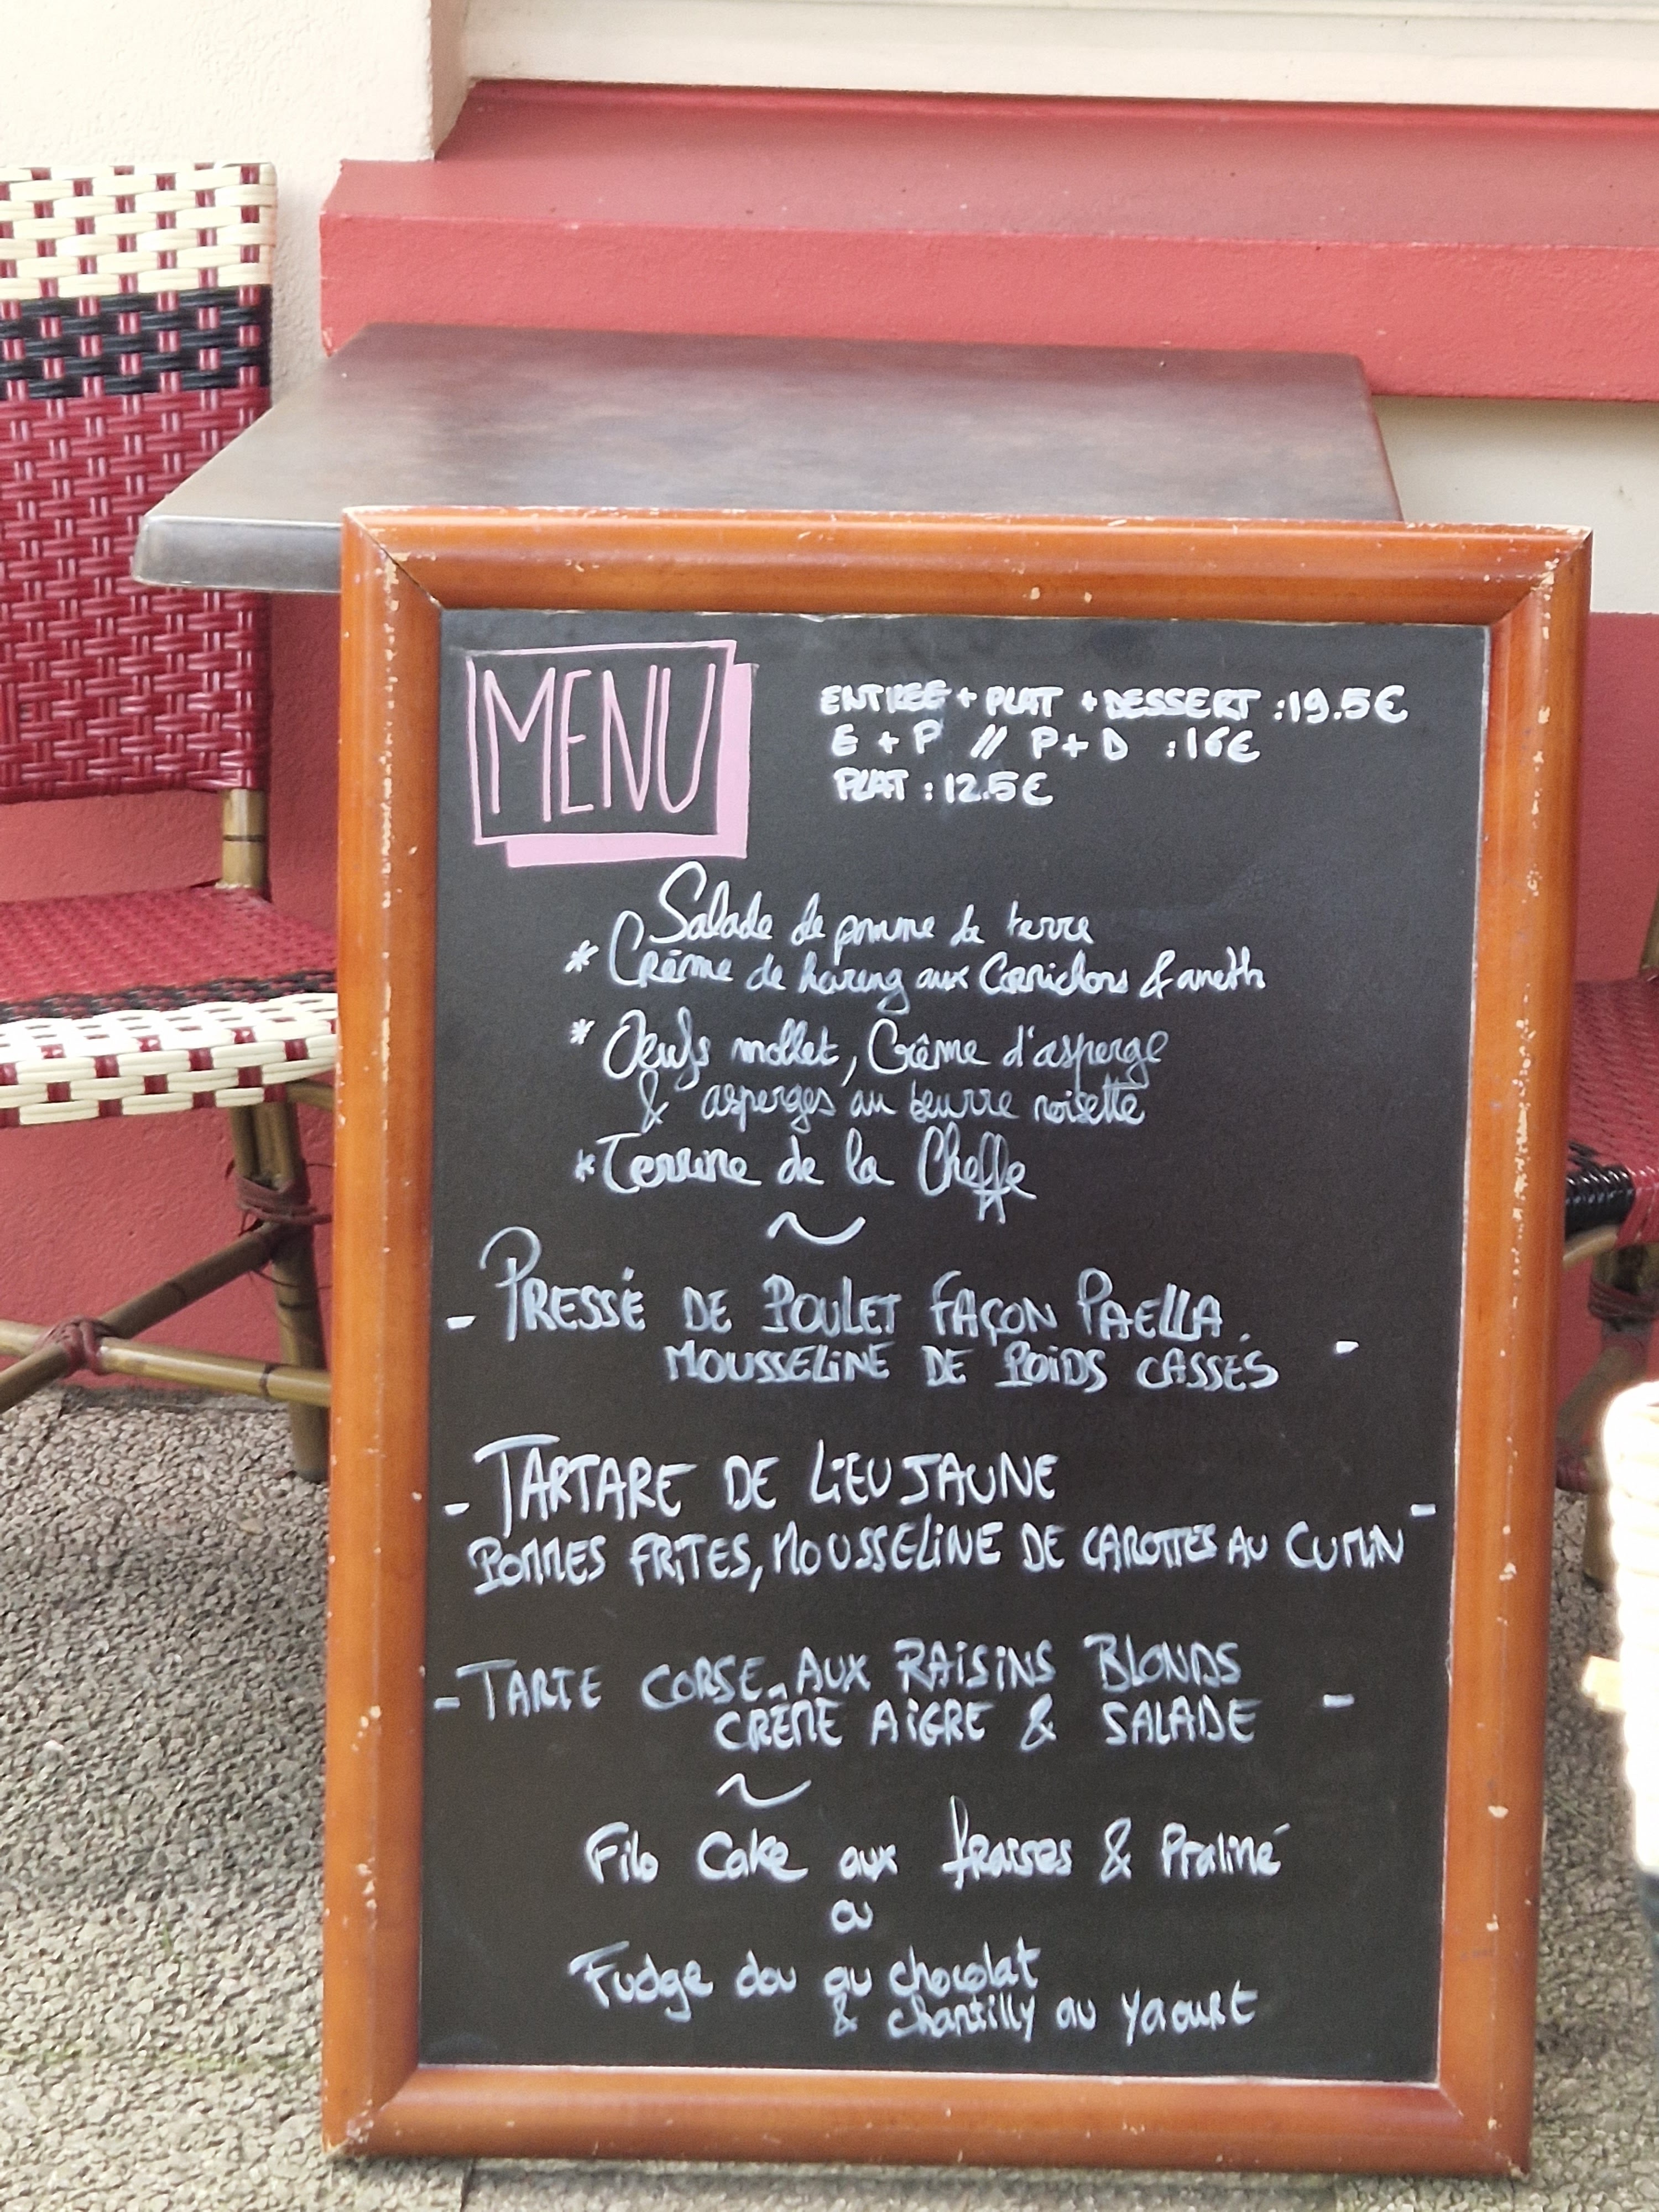 MENU
ENTREE + PLAT + DESSERT : 19.5€
E + P // P + D : 16€
PLAT : 12.5€
Salade de pomme de terre
* Crème de hareng aux Cornichons & aneth
* Oeufs mollet, Crême d'asperge
& asperges au beurre noisette
* Terrine de la Cheffe
~
- PRESSÉ DE POULET FAÇON PAELLA.
MOUSSELINE DE POIDS CASSÉS -
- TARTARE DE LIEU JAUNE
POMMES FRITES, MOUSSELINE DE CAROTTES AU CUMIN -
- TARTE CORSE AUX RAISINS BLONDS
CRÈME AIGRE & SALADE -
~
Filo Cake aux fraises & Praliné
ou
Fudge dou au chocolat
& chantilly au yaourt